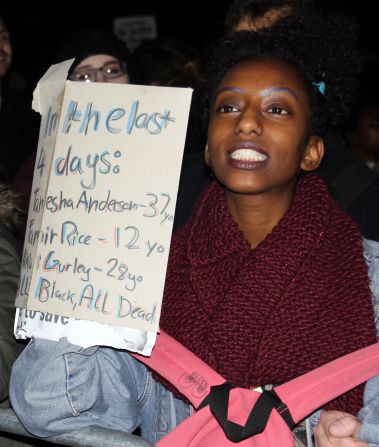 In the last
4 days:
Tanesha Anderson-37 yo
Tamir Rice - 12 yo
Gurley - 28 yo
Black, All Dead
to save